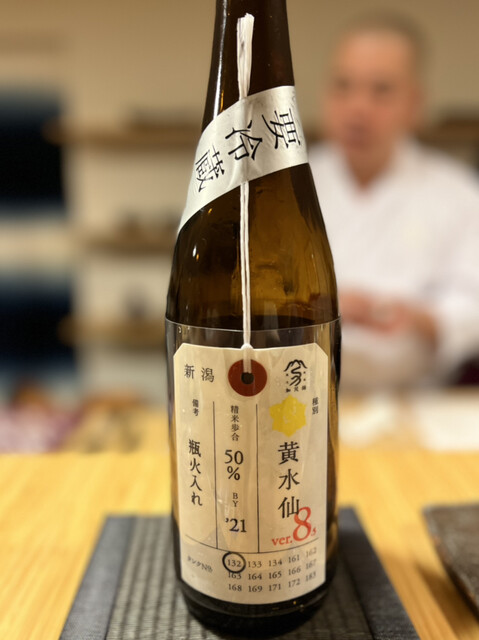 要冷蔵
新潟
加茂錦
種別
黄水仙
ver.8.s
精米歩合
50%
BY
'21
備考
瓶火入れ
タンクNo.
132 133 134 161 162
163 164 165 166 167
168 169 171 172 185